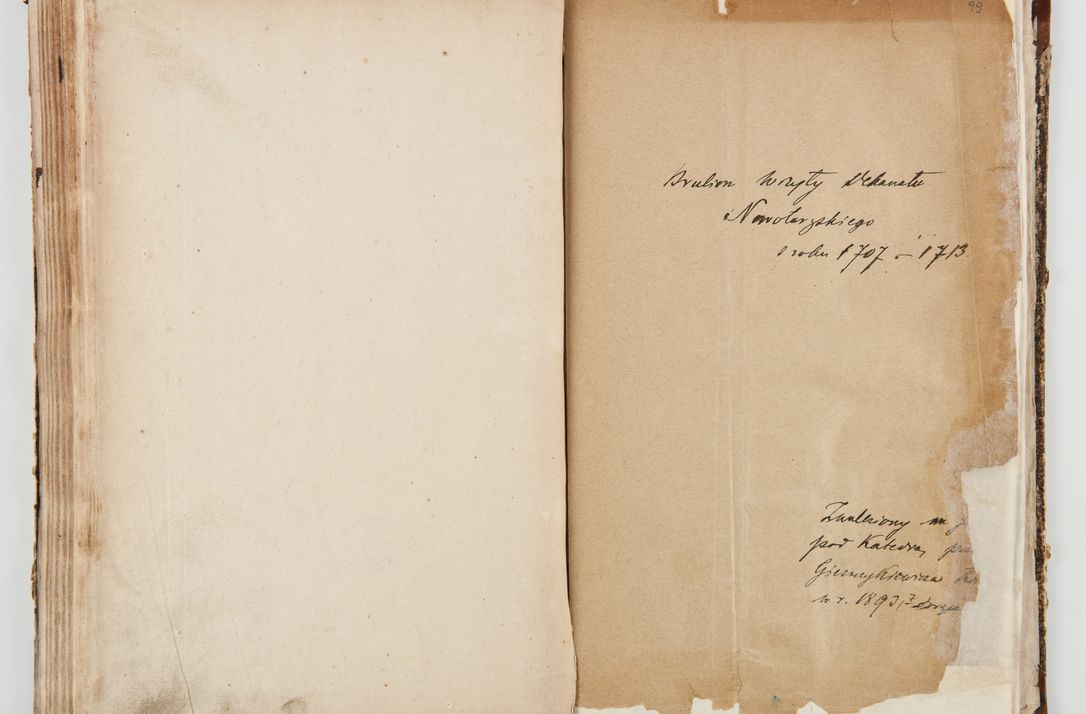 99
Brulion Wizyty Dekanatu
Nowotarskiego
z roku 1707 – 1713.
Znaleziony na
pod Katedrą
Gieszczykiewicza
w r. 1893